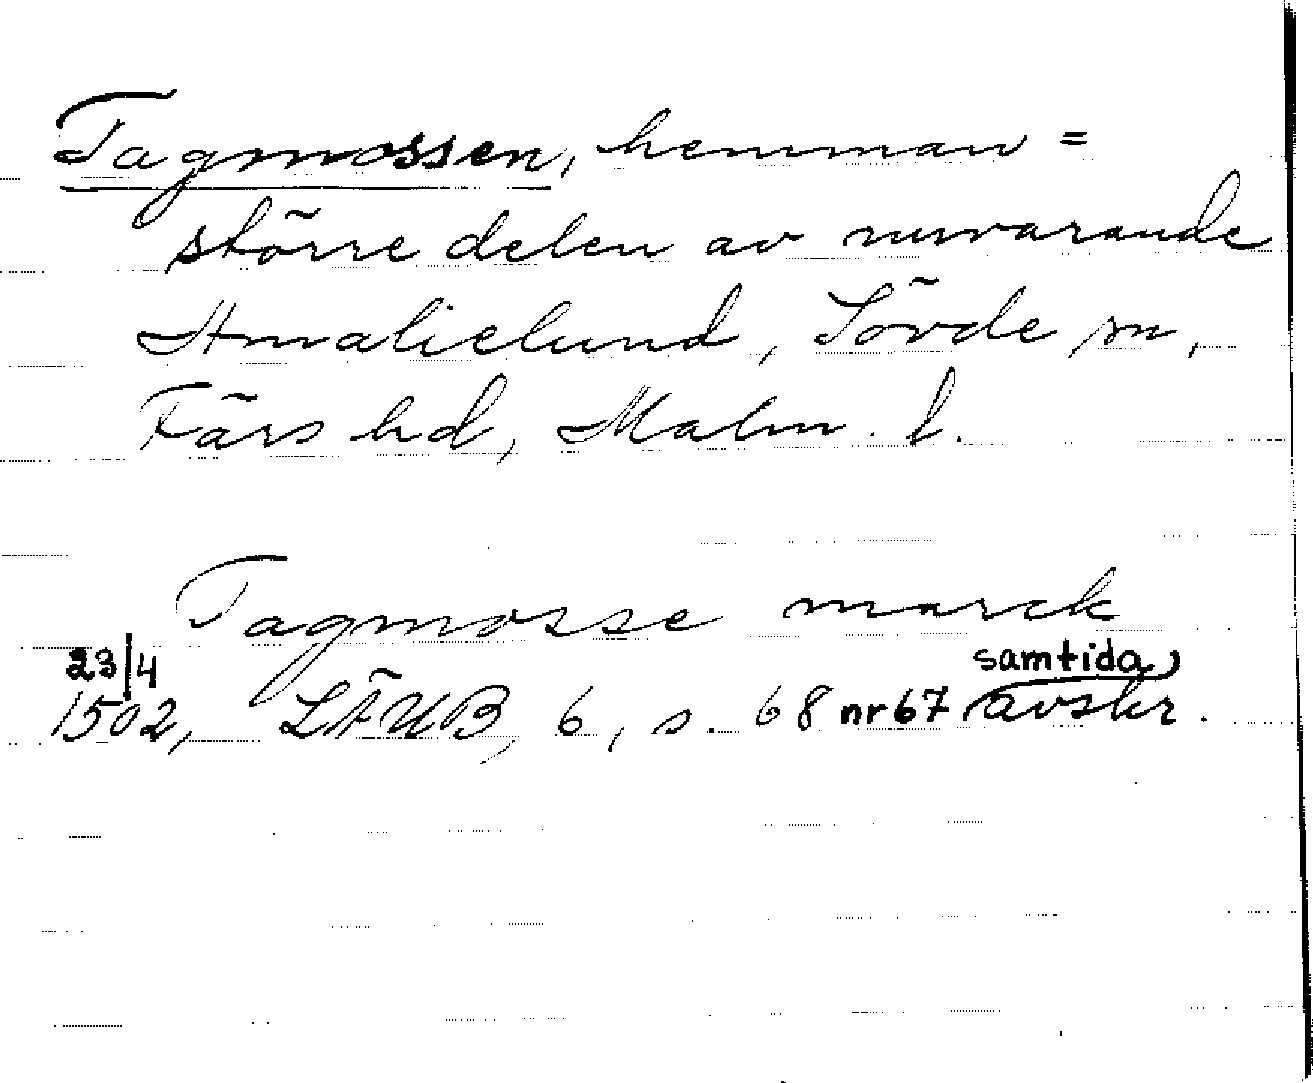 Tagmossen, hemman =
större delen av nuvarande
Amalielund, Sövde sn,
Färs hd, Malm. l.
Tagmosse marck
23/4 samtida
1502, LÄUB, 6, s. 68 nr 67 avskr.